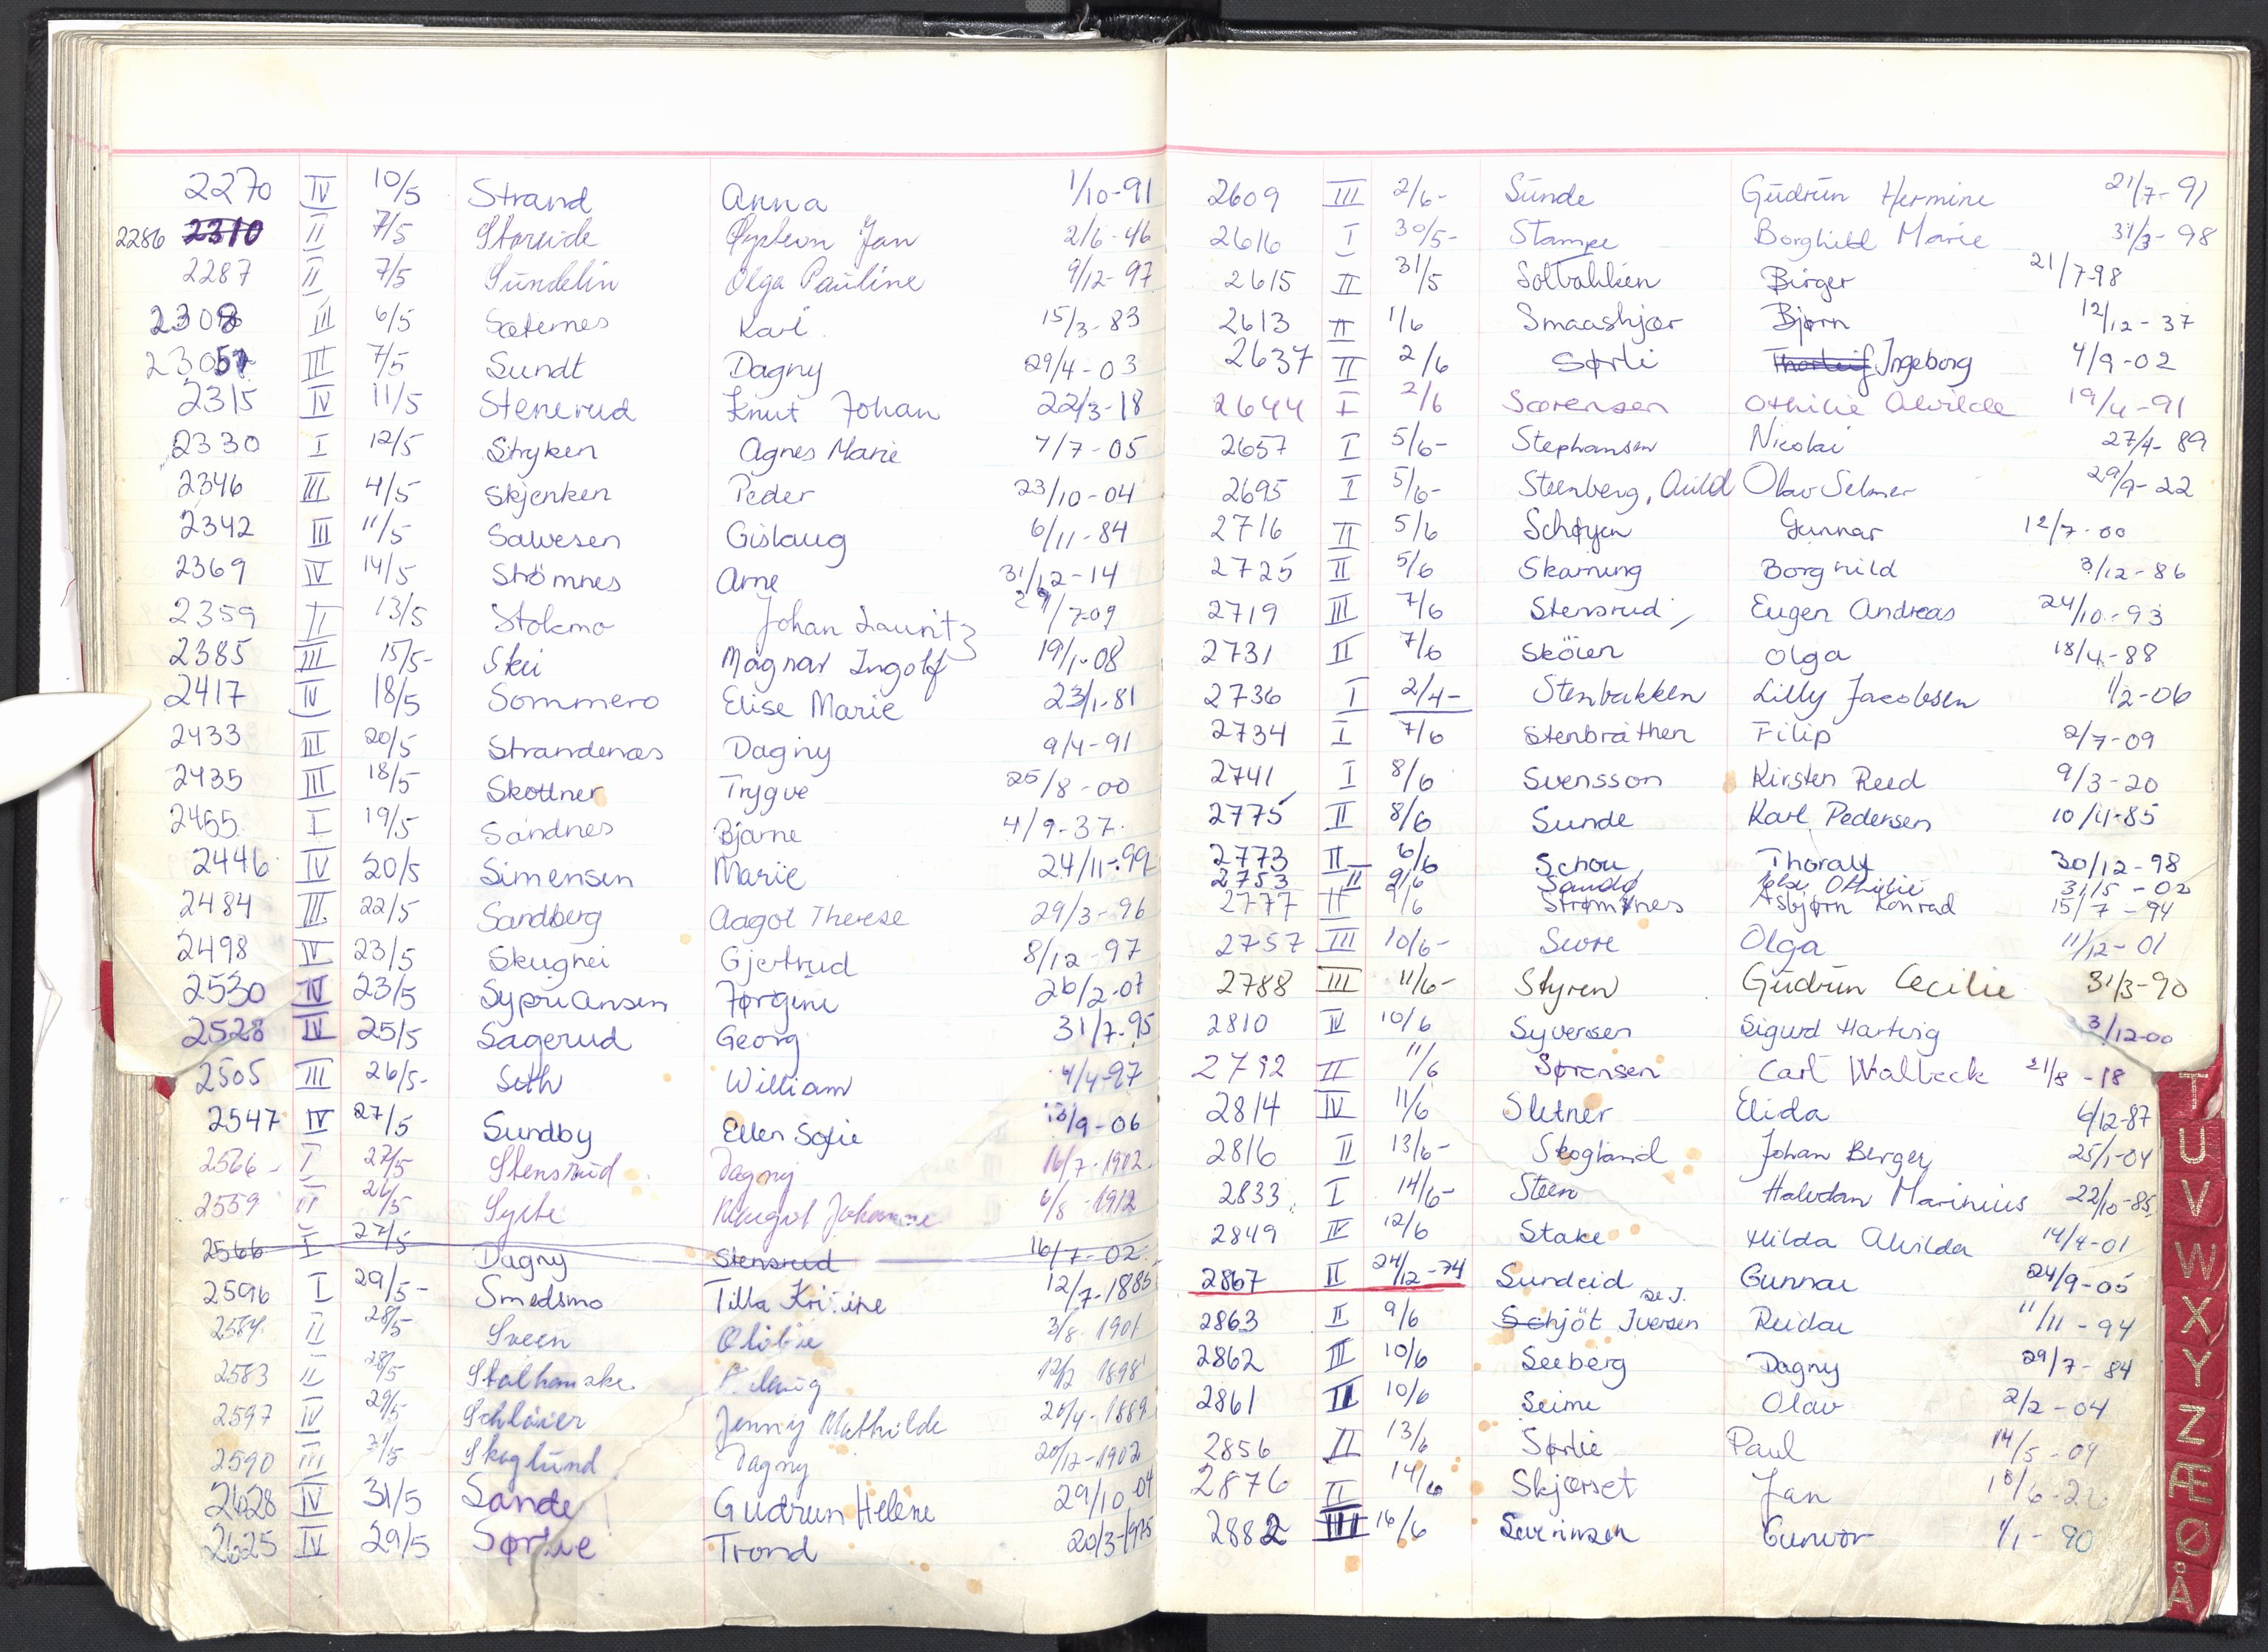 2270 IV 10/5 Strand Anna 1/10-91
2286 2310 II 7/5 Øystein Jan 2/6-46
2287 II 7/5 Sundelin Olga Pauline 9/12-97
2308 III 6/5 Sæternes Karl 15/3-83
2305 III 7/5 Sundt Dagny 29/4-03
2315 IV 11/5 Stenerud Knut Johan 22/3-18
2330 I 12/5 Stryken Agnes Marie 7/7-05
2346 III 4/5 Skjenken Peder 23/10-04
2342 III 11/5 Salvesen Gislaug 6/11-84
2369 IV 14/5 Strömnes Arne 31/12-14
2359 II 13/5 Stokmo Johan Lauritz /7-09
2385 III 15/5- Skei Magnar Ingolf 19/1-08
2417 IV 18/5 Sommero Elise Marie 23/1-81
2433 III 20/5 Strandenæs Dagny 9/4-91
2435 III 18/5 Skottner Trygve 25/8-00
2455 I 19/5 Sandnes Bjarne 4/9-37
2446 IV 20/5 Simensen Marie 24/11-99
2484 III 22/5 Sandberg Aagot Therese 29/3-96
2498 IV 23/5 Skugnei Gjertrud 8/12-97
2530 IV 23/5 Sypriansen Jørgine 26/2-07
2528 IV 25/5 Sagerud Georg 31/7-95
2505 III 26/5- Seth William 4/4-97
2547 IV 27/5 Sundby Ellen Sofie /9-06
2566- I 27/5 Stensrud Dagny 16/7-1902
2559 II 26/5 Syste Margot Johanne 6/8-1912
2566 I 27/5 Dagny Stensrud 16/7-02
2596 I 29/5- Smedsmo Tilla 12/7-1885
2584 II 28/5 Sveen 3/8-1901
2583 II 28/5 Stalhanske 12/2 1898
2597 IV 29/5 Schlüier Jenny Mathilde 1889
2590 III 31/5 Skoglund Dagny 20/12-1902
2628 IV 31/5 Sande Gudrun Helene 29/10-04
2625 IV 29/5 Sørlie Trond 20/3-1925
2609 III 2/6- Sunde Gudrun Hermine 21/7-91
2616 I 30/5- Stampe Borghild Marie 31/3-98
2615 II 31/5 Solbakken Birger 21/7-98
2613 II 1/6 Smaaskjær Bjørn 12/12-37
2637 II 2/6 Sørli Thorleif Ingeborg 4/9-02
2644 I 2/6 Sørensen Othilie Alvilde 19/4-91
2657 I 5/6- Stephansen Nicolai 27/4-89
2695 I 5/6- Steenberg, Auild Olav Selmer 29/9-22
2716 II 5/6 Schøyen Gunnar 12/7-00
2725 II 5/6 Skarnung Borghild 3/12-86
2719 III 7/6 Stensrud Eugen Andreas 24/10-93
2731 II 7/6 Sköien Olga 18/4-88
2736 I 2/4- Stenbakken Lilly Jacobsen 1/2-06
2734 I 7/6 Stenbråthen Filip 2/7-09
2741 I 8/6 Svensson Kirsten Reed 9/3-20
2775 II 8/6 Sunde Karl Pedersen 10/4-85
2773 II 6/6 Schou Thoralf 30/12-98
2753 II 9/6 Sandø Othilie 31/5-02
2777 II 9/6 Strømnes Asbjørn Konrad 15/7-94
2757 III 10/6- Sevre Olga 11/12-01
2788 III 11/6- Styren Gudrun Cecilie 31/3-90
2810 IV 10/6 Syversen Sigurd Hartvig 3/12-00
2792 II 11/6 Sørensen Carl Walbeck 21/8-18
2814 IV 11/6 Sletner Elida 6/12-87
2816 II 13/6- Skogland Johan Berger 25/1-04
2833 I 14/6- Steen Halvdan Marinius 22/10-85
2849 IV 12/6 Stake Hilda Alvilda 14/4-01
2867 II 24/12-74 Sundeid Gunnar 24/9-05
2863 II 9/6 Schjöt Iversen se J. Reidar 11/11-94
2862 III 10/6 Seeberg Dagny 29/7-84
2861 II 10/6 Seime Olav 2/2-04
2856 II 13/6 Sørlie Paul 14/5-09
2876 II 14/6 Skjørset Jan 18/6-22
2882 III 16/6 Severinsen Gunvor 1/1-90
T
U
V
W
X
Y
Z
Æ
Ø
Å